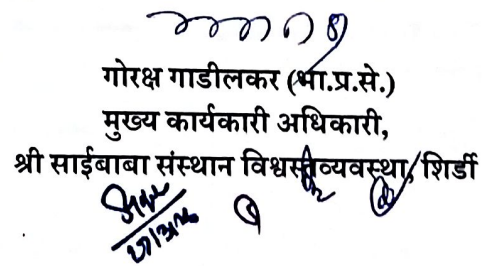 गोरक्ष गाडीलकर (भा.प्र.से.)
मुख्य कार्यकारी अधिकारी,
श्री साईबाबा संस्थान विश्वस्तव्यवस्था, शिर्डी